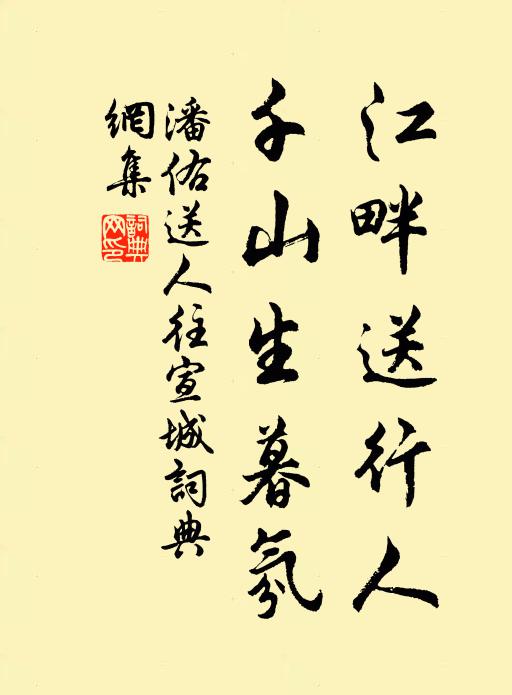 江畔送行人
千山生暮氛
潘佑送人往宣城詞典
網集
詞典網印